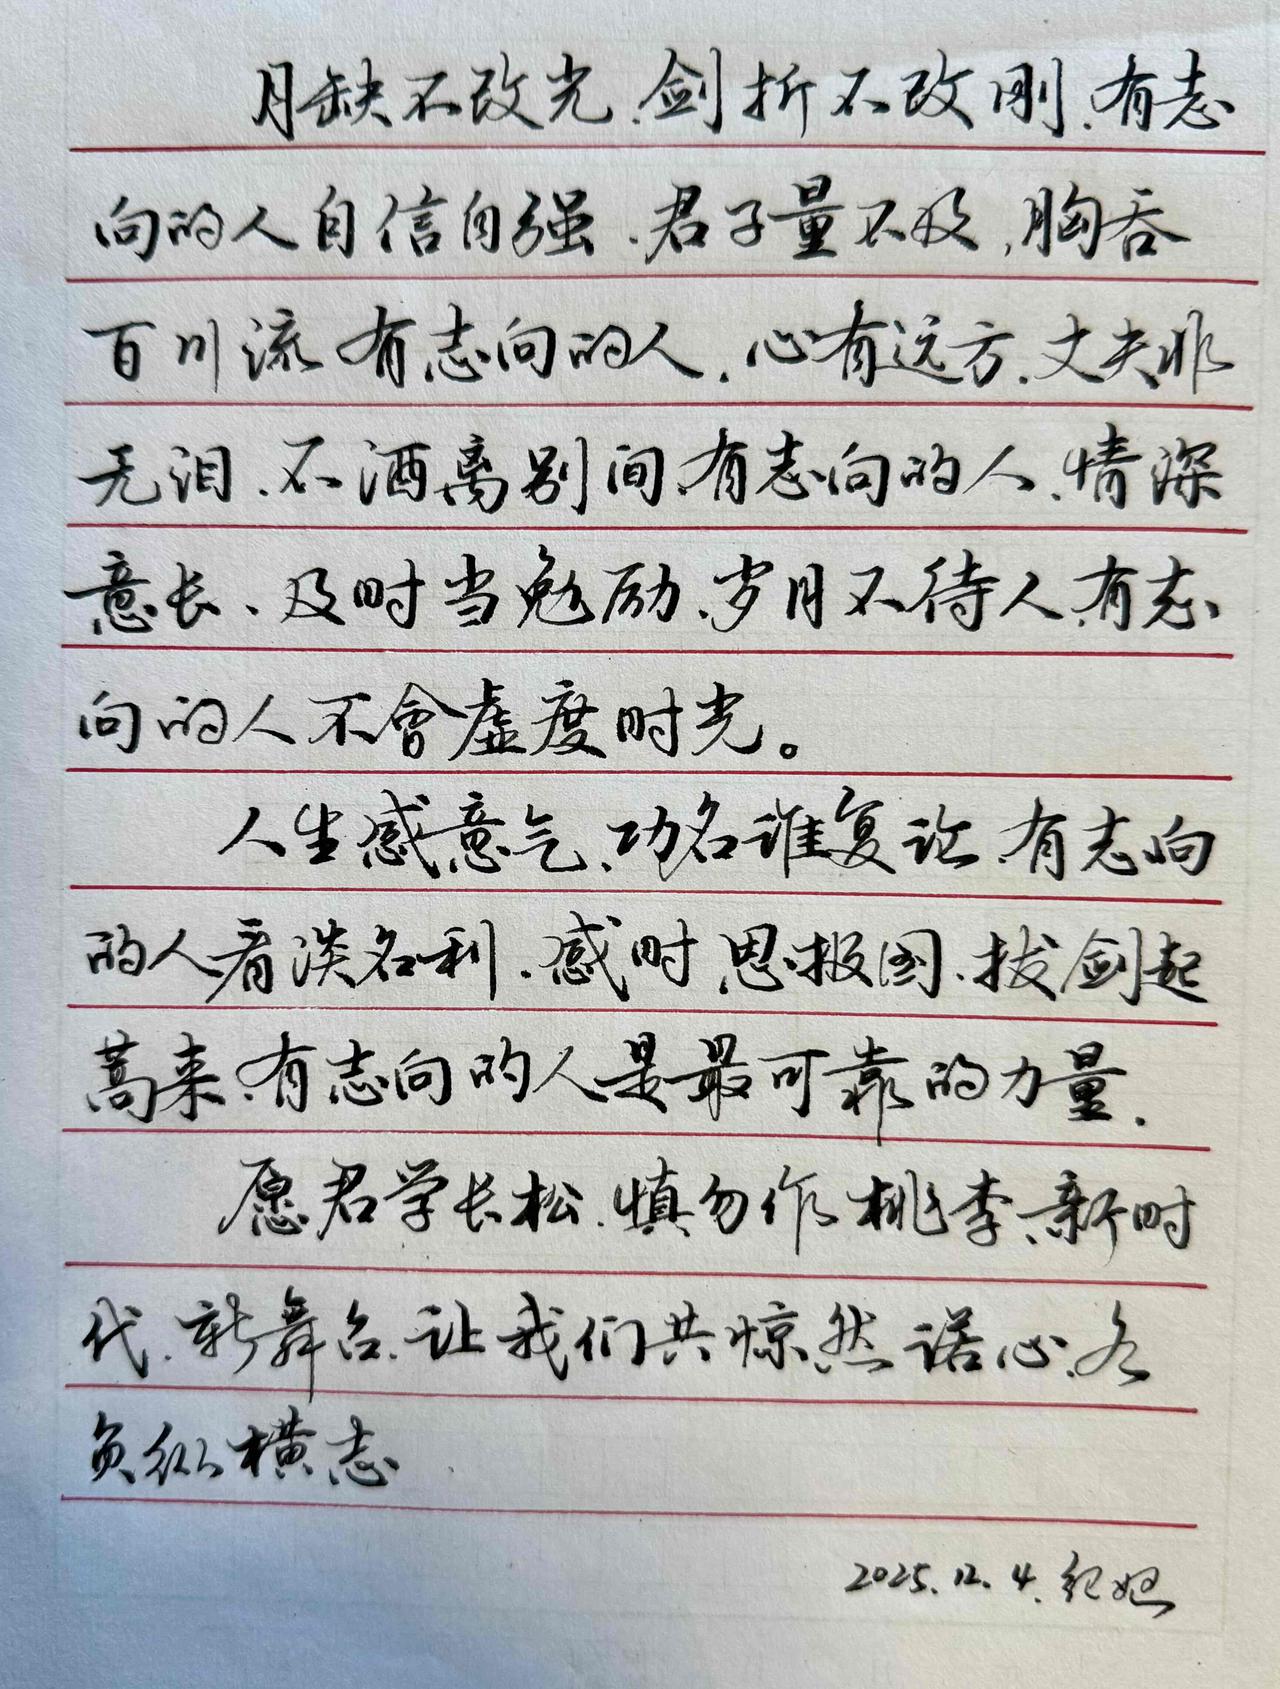 月缺不改光、剑折不改刚、有志
向的人自信自强、君子量不及,胸吞
百川流 有志向的人、心有远方、丈夫非
无泪、不洒离别间、有志向的人、情深
意长、及时当勉励、岁月不待人、有志
向的人不會虚度时光。
人生感意气、功名谁复论、有志向
的人看淡名利、感时思报国、拔剑起
蒿来、有志向的人是最可靠的力量.
愿君学长松、慎勿作桃李、新时
代、新舞台、让我们共惊然诺心、各
负纵横志
2025.12.4.